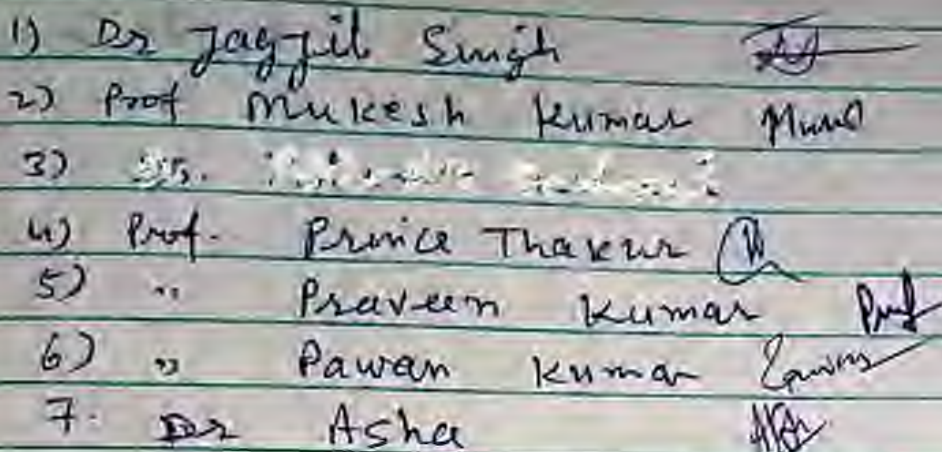 1) Dr Jagjit Singh
2) Prof Mukesh Kumar
3)
4) Prof. Prince Thakur
5) " Praveen Kumar
6) " Pawan Kumar
7. Dr Asha